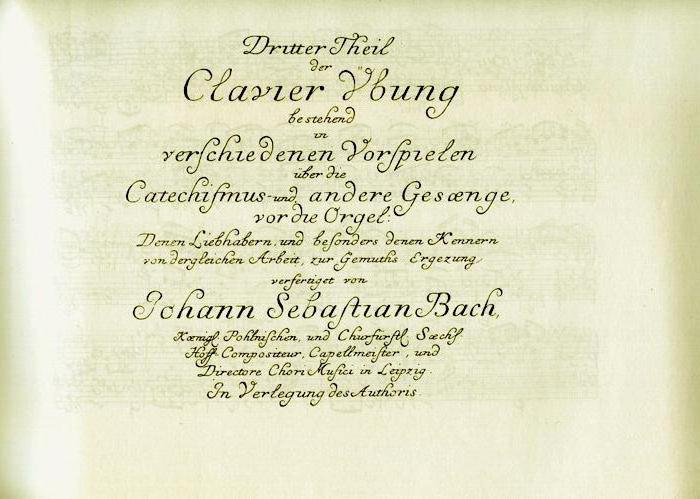 Dritter Theil
der
Clavier Übung
bestehend
in
verschiedenen Vorspielen
über die
Catechismus-und andere Gesænge,
vor die Orgel:
Denen Liebhabern, und besonders denen Kennern
von dergleichen Arbeit, zur Gemüths Ergezung
verfertiget von
Johann Sebastian Bach,
Kœnigl. Pohlnischen, und Churfürstl. Sæchs.
Hoff-Compositeur, Capellmeister, und
Directore Chori Musici in Leipzig.
In Verlegung des Authoris.